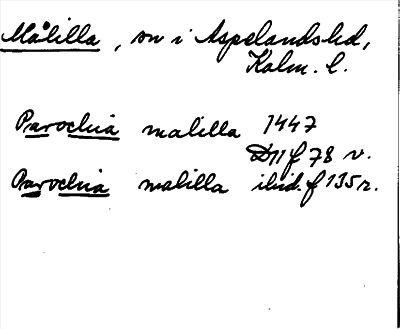 Målilla, sn i Aspelands hd,
Kalm. l.
Parochia malilla 1447
D 11 f 78 v.
Parochia malilla ibid. f 135 r.